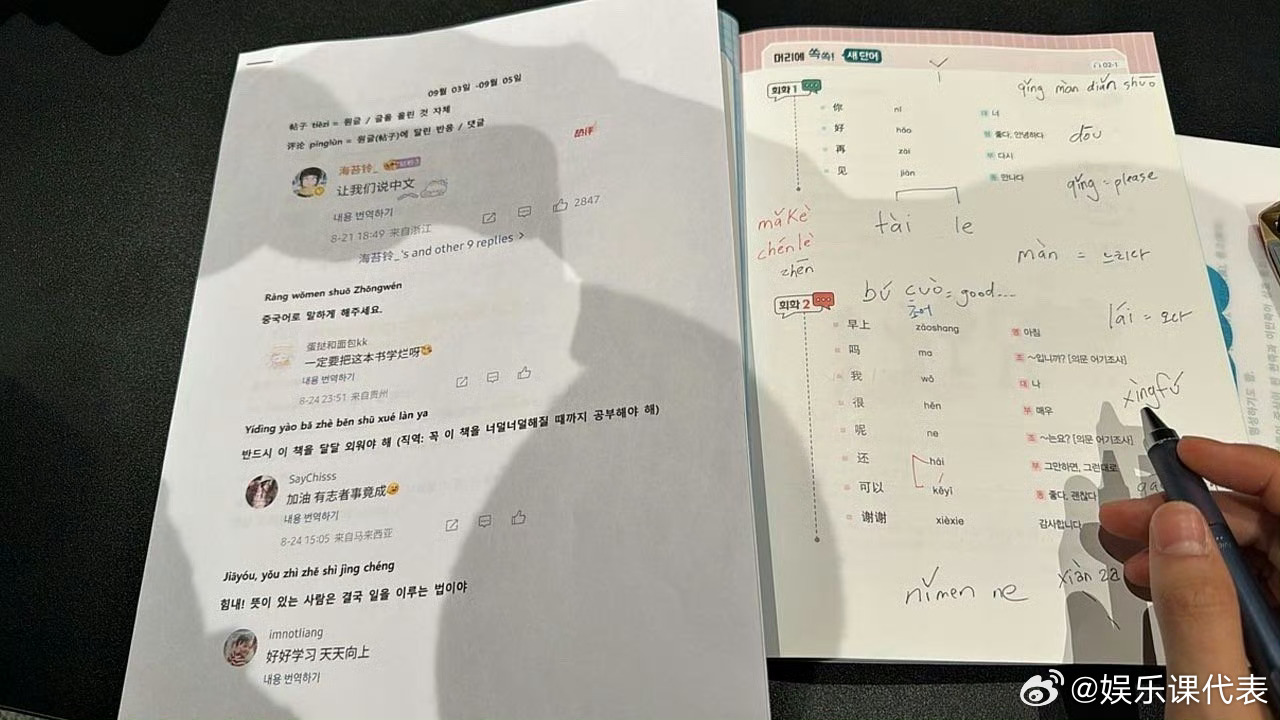 09월 03일 -09월 05일
帖子 tiězi = 원글 / 글을 올린 것 자체
评论 pínglùn = 원글(帖子)에 달린 반응 / 댓글
热评
海苔铃_
让我们说中文
내용 번역하기
2847
8-21 18:49 来自浙江
海苔铃_'s and other 9 replies >
Ràng wǒmen shuō Zhōngwén
중국어로 말하게 해주세요.
蛋挞和面包kk
一定要把这本书学烂呀
내용 번역하기
8-24 23:51 来自贵州
Yídìng yào bǎ zhè běn shū xué làn ya
반드시 이 책을 달달 외워야 해 (직역: 꼭 이 책을 너덜너덜해질 때까지 공부해야 해)
SayChisss
加油 有志者事竟成
내용 번역하기
8-24 15:05 来自马来西亚
Jiāyóu, yǒu zhì zhě shì jìng chéng
힘내! 뜻이 있는 사람은 결국 일을 이루는 법이야
imnotliang
好好学习 天天向上
내용 번역하기
머리에 쏙쏙! 새 단어
02-1
qǐng màn diǎn shuō
회화 1
你 nǐ 대 너
好 hǎo 형 좋다, 안녕하다
dōu
再 zài 부 다시
见 jiàn 동 만나다
qǐng = please
mǎkè
chénlè
zhēn
tài le
màn = 느리다
bú cuò = good...
lái = 오다
회화 2
早上 zǎoshang 명 아침
吗 ma 조 ~입니까? [의문 어기조사]
我 wǒ 대 나
xìngfú
很 hěn 부 매우
呢 ne 조 ~는요? [의문 어기조사]
还 hái 부 그만하면, 그런대로
可以 kěyǐ 형 좋다, 괜찮다
谢谢 xièxie 감사합니다
nǐmen ne
xiàn za
@娱乐课代表